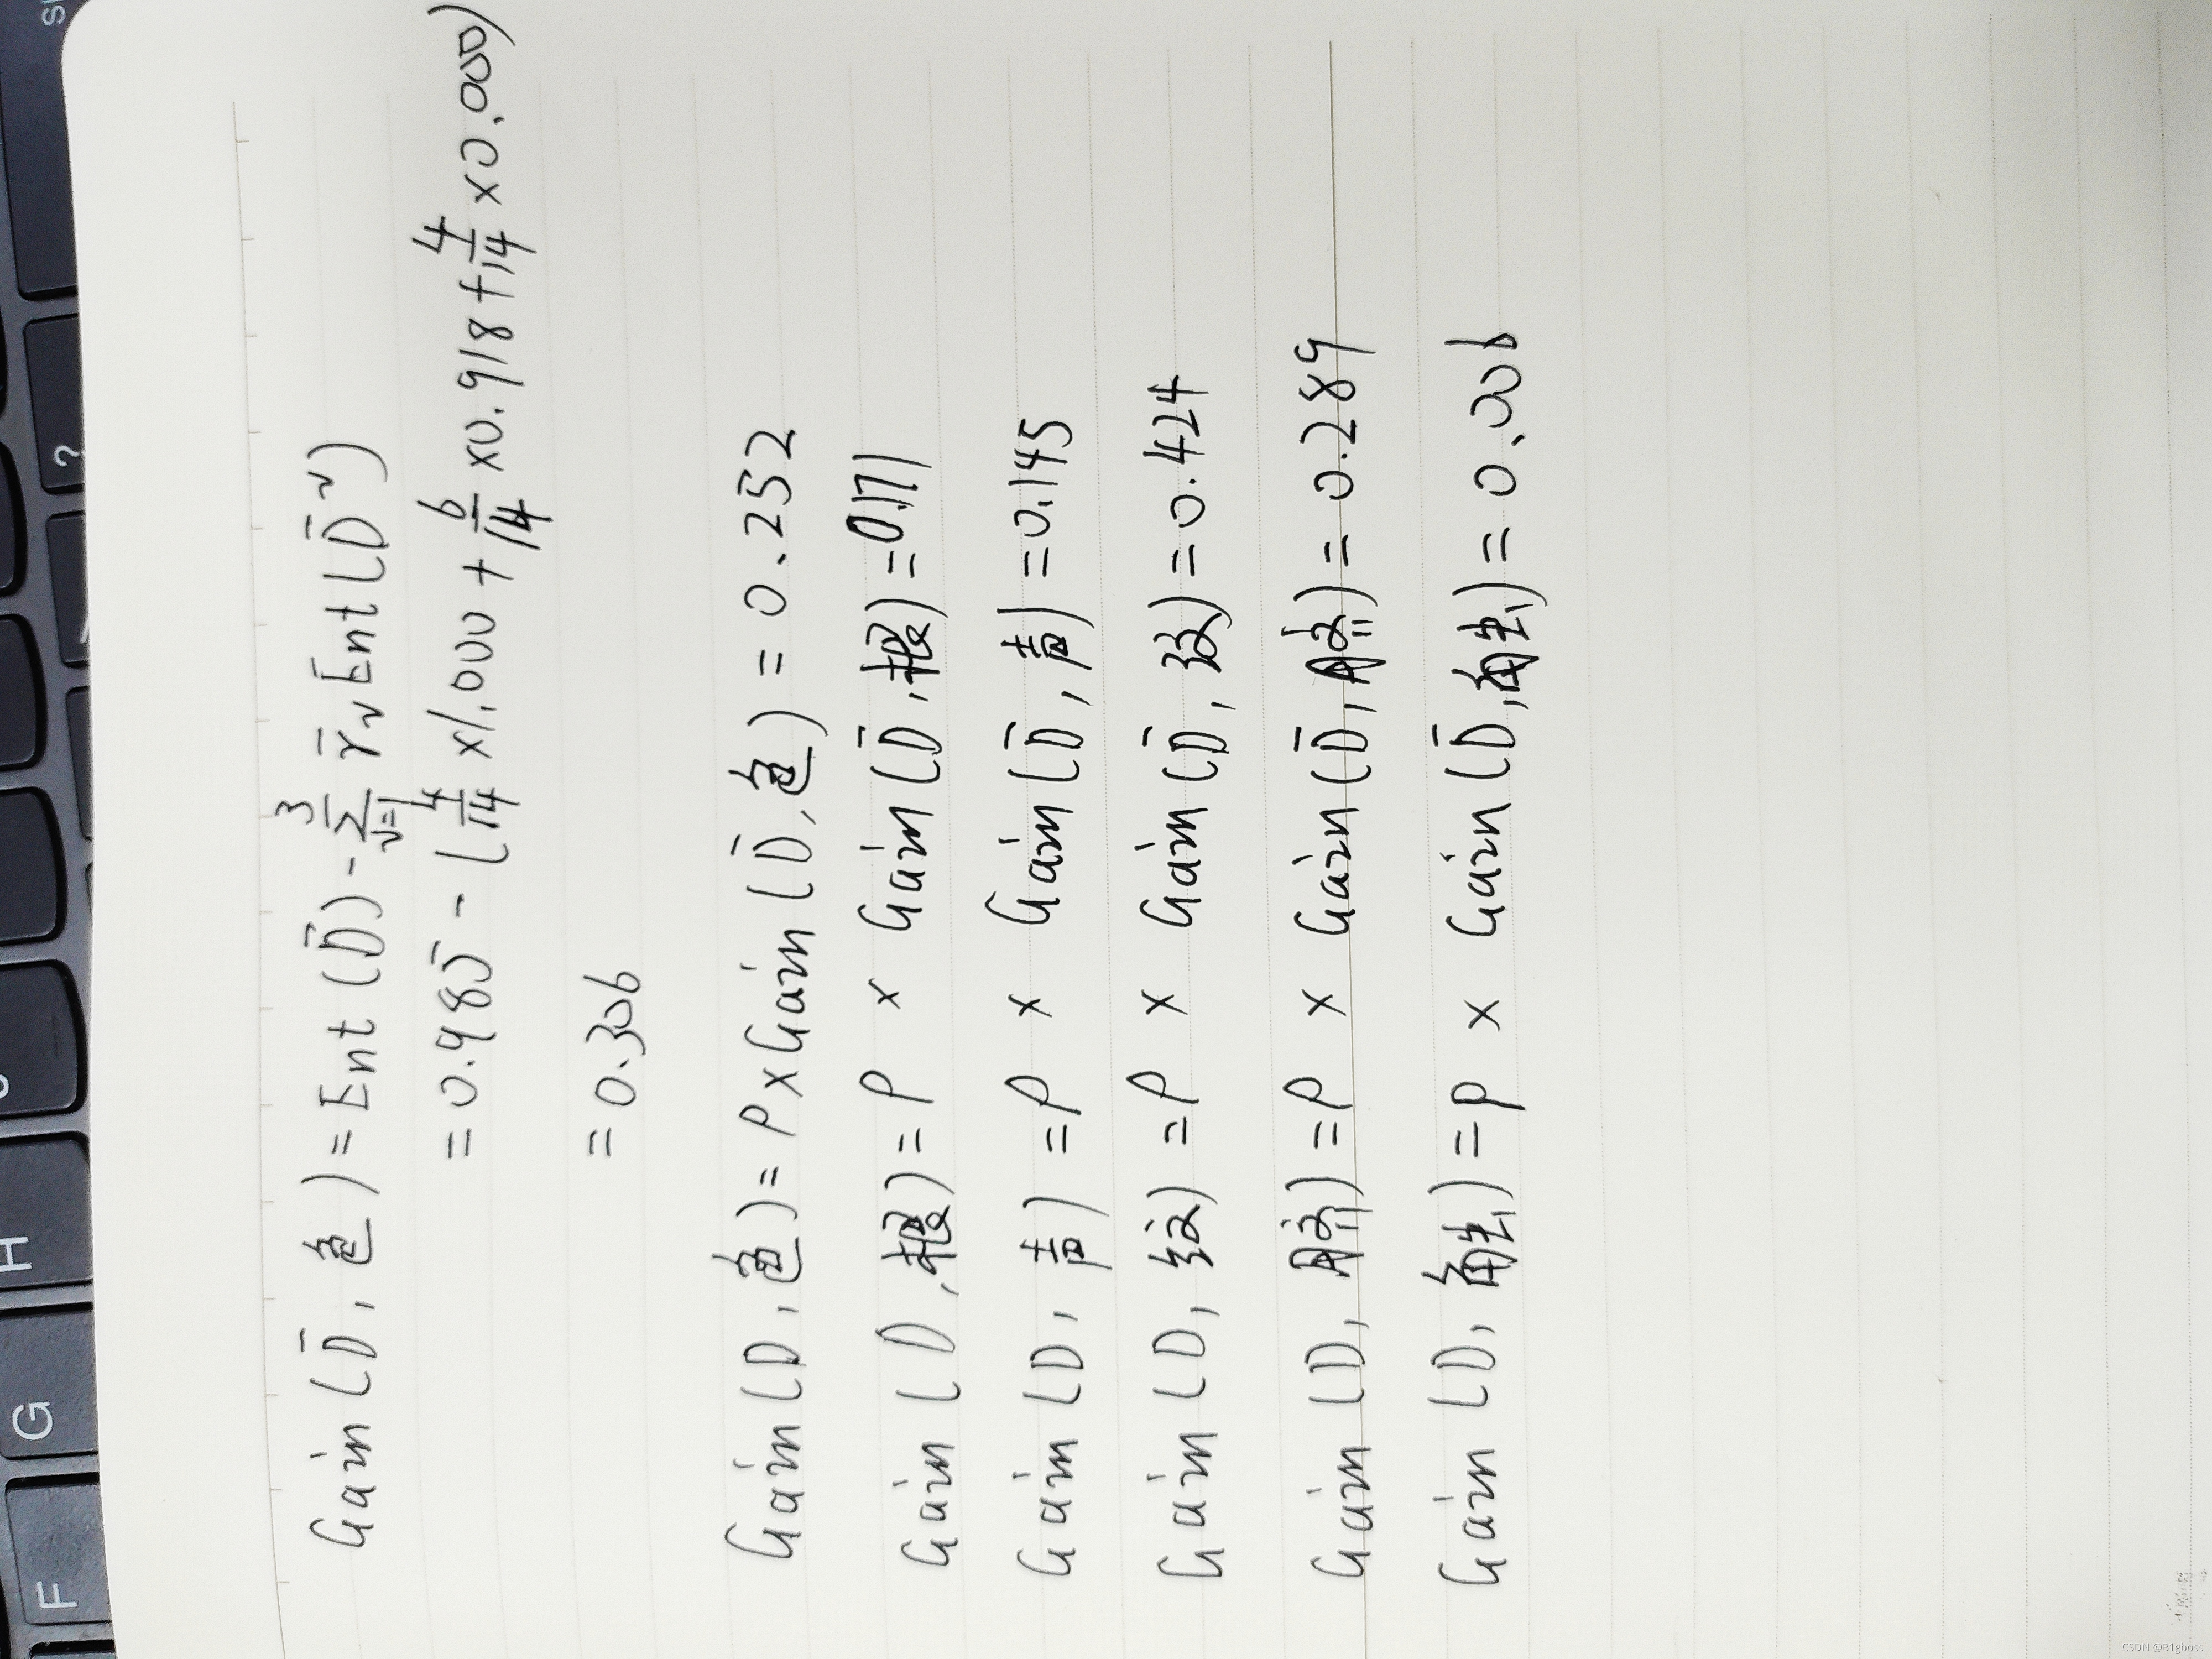 Gain(D̃, 色) = Ent(D̃) - 3∑v=1 r̃v Ent(D̃v)
= 0.985 - (4/14 × 1.000 + 6/14 × 0.918 + 4/14 × 0.000)
= 0.306
Gain(D, 色) = P × Gain(D̃, 色) = 0.252
Gain(D, 根) = P × Gain(D̃, 根) = 0.171
Gain(D, 声) = P × Gain(D̃, 声) = 0.145
Gain(D, 纹) = P × Gain(D̃, 纹) = 0.424
Gain(D, 脐) = P × Gain(D̃, 脐) = 0.289
Gain(D, 触) = P × Gain(D̃, 触) = 0.006
F
G
H
?
CSDN @B1gboss